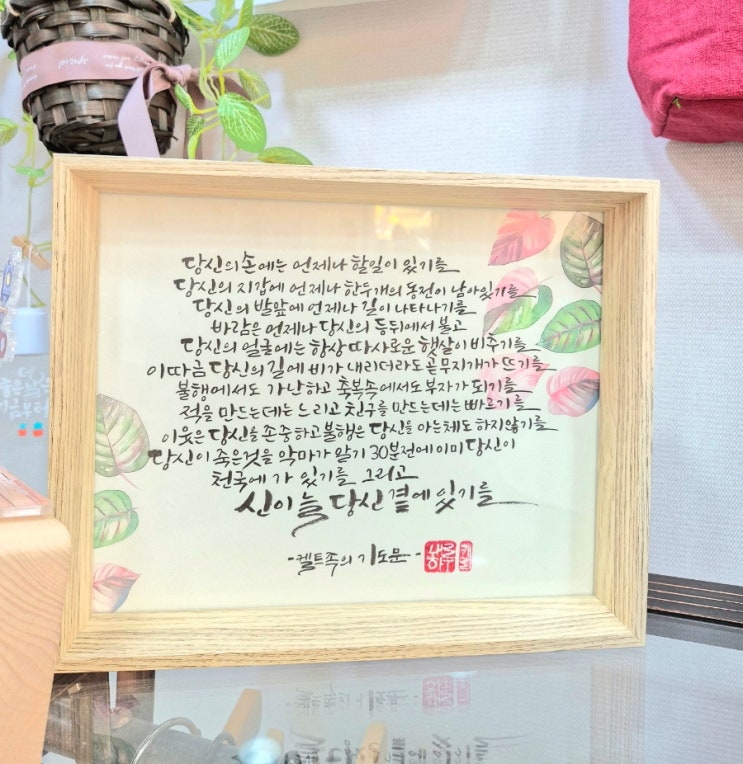 special
당신의 손에는 언제나 할일이 있기를
당신의 지갑에 언제나 한두개의 동전이 남아있기를
당신의 발앞에 언제나 길이 나타나기를
바람은 언제나 당신의 등뒤에서 불고
당신의 얼굴에는 항상 따사로운 햇살이 비추기를
이따금 당신의 길에 비가 내리더라도 곧 무지개가 뜨기를
불행에서도 가난하고 축복속에서도 부자가 되기를
적을 만드는데는 느리고 친구를 만드는데는 빠르기를
이웃은 당신을 존중하고 불행은 당신을 아는체도 하지않기를
당신이 죽은것을 악마가 알기 30분전에 이미 당신이
천국에 가 있기를 그리고
신이 늘 당신 곁에 있기를
-켈트족의 기도문-